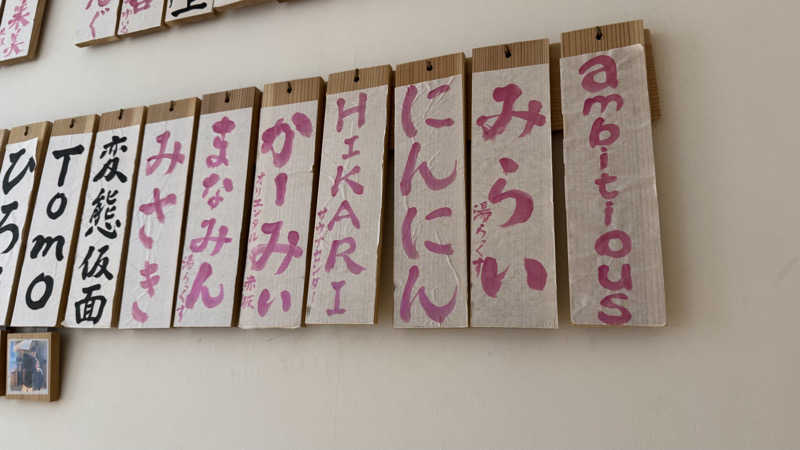 ambitious
みらい
湯らっくす
にんにん
HIKARI
サウナセンター
かーみぃ
オリエンタル赤坂
まなみん
湯らっくす
みさき
変態仮面
Tomo
ひろ